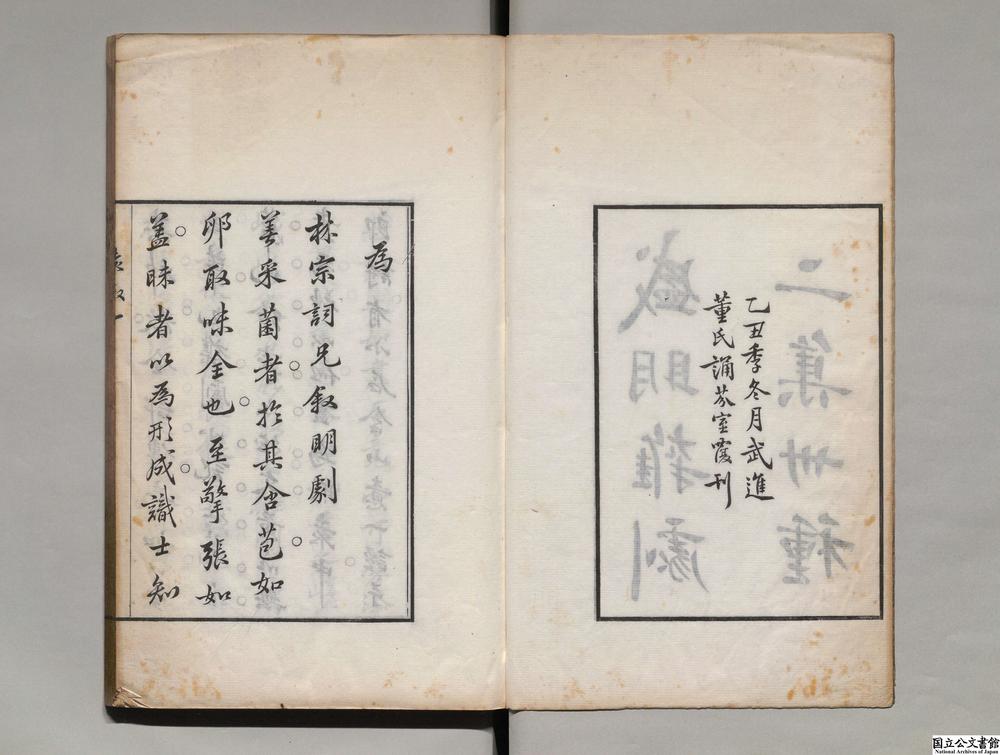 乙丑季冬月武進
董氏誦芬室覆刊
為
林宗詞兄叙明劇
善采菌者於其含苞如
卵取味全也至擎張如
蓋昧者以為形成識士知
国立公文書館
National Archives of Japan